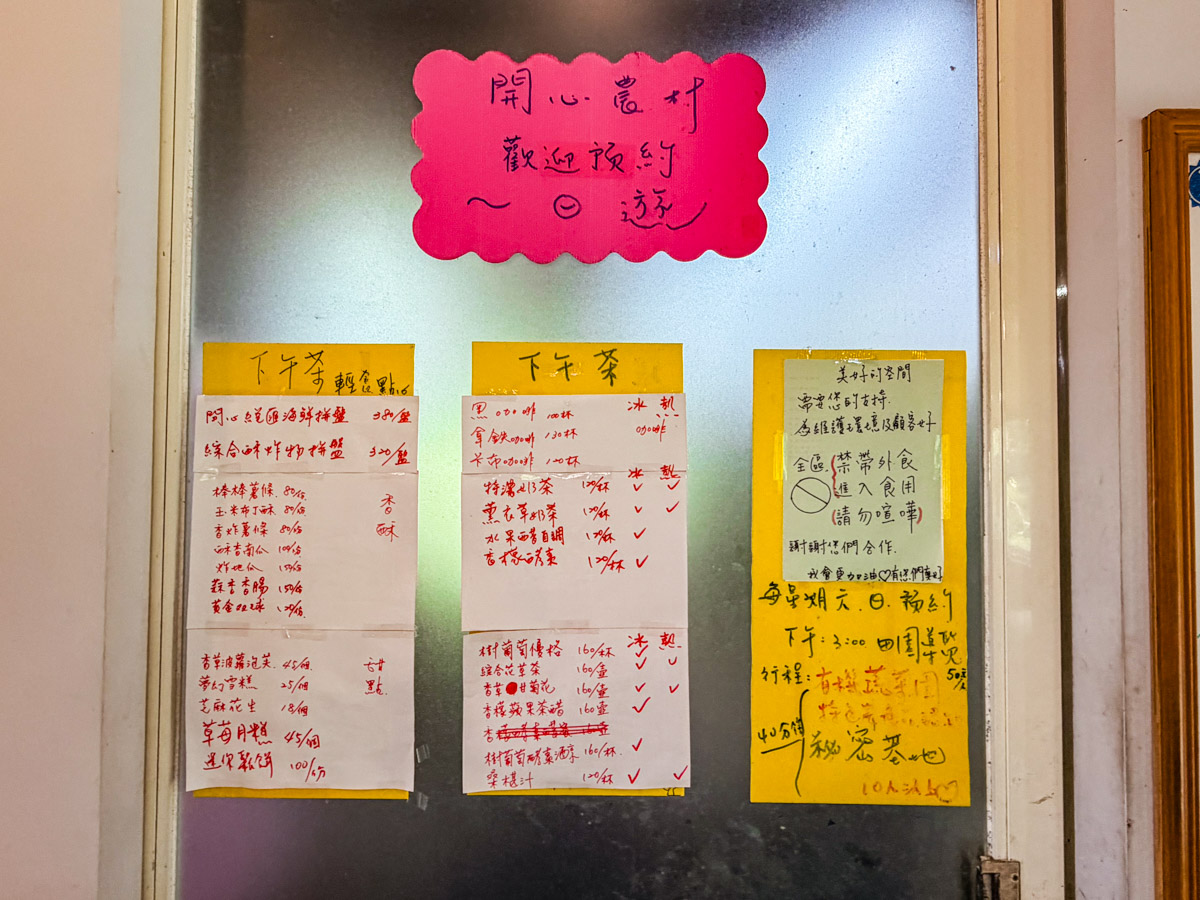 開心農村
歡迎預約
～ 日遊
下午茶
輕食點心
開心綜匯海鮮拼盤 380/盤
綜合酥炸物拼盤 320/盤
棒棒薯條 80/份
玉米布丁酥 80/份
香炸薯條 80/份
酥香南瓜 100/份
炸地瓜 150/份
蒜香香腸 150/份
黃金球 120/份
香酥
香草菠蘿泡芙 45/個
夢幻雪糕 25/個
芝麻花生 18/個
草莓月糕 45/個
迷你鬆餅 100/份
甜點
下午茶
冰 熱
黑咖啡 100杯 咖啡
拿鐵咖啡 130杯
卡布咖啡 120杯
冰 熱
特濃奶茶 120/杯 ✓ ✓
薰衣草奶茶 120/杯 ✓ ✓
水果醋自調 120/杯 ✓
香檬酵素 120/杯 ✓
冰 熱
樹葡萄優格 160/杯 ✓
綜合花草茶 160/壺 ✓
香草甘菊花 160/壺 ✓ ✓
香檬蘋果茶醋 160壺 ✓
樹葡萄酵素酒醇 160/杯 ✓
桑椹汁 120/杯 ✓ ✓
美好的空間
需要您的支持
為維護環境及顧客好
全區 禁帶外食
進入食用
(請勿喧嘩)
謝謝您們合作
我會更加油♡有您們真好
每星期六.日.預約
下午:3:00 田園導覽
50元/人
行程: 有機蔬菜園
特色
40分鐘
秘密基地
10人以上♡